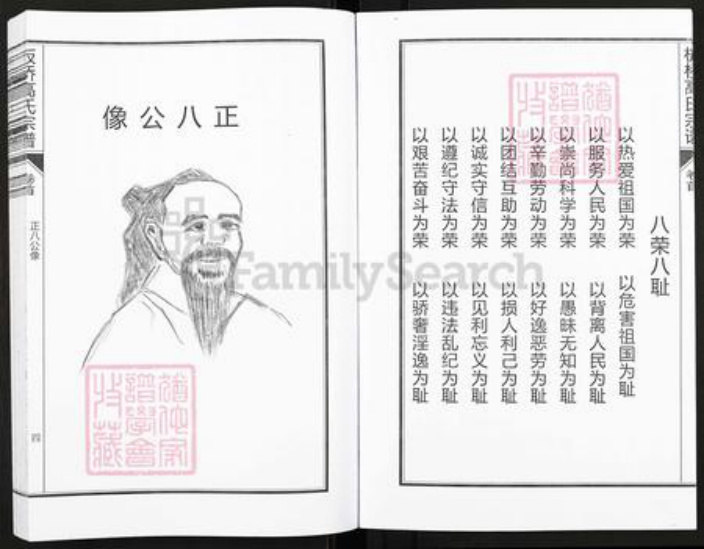 八荣八耻
以热爱祖国为荣 以危害祖国为耻
以服务人民为荣 以背离人民为耻
以崇尚科学为荣 以愚昧无知为耻
以辛勤劳动为荣 以好逸恶劳为耻
以团结互助为荣 以损人利己为耻
以诚实守信为荣 以见利忘义为耻
以遵纪守法为荣 以违法乱纪为耻
以艰苦奋斗为荣 以骄奢淫逸为耻
卷首
正八公像
高氏宗谱
卷首
正八公像
四
FamilySearch